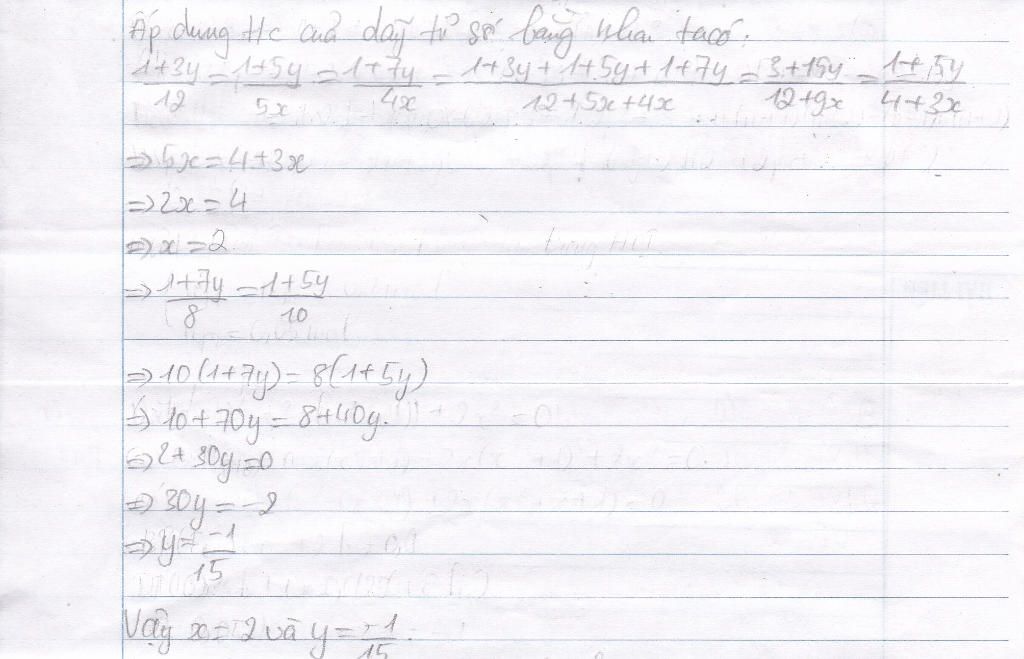 Áp dụng tc của dãy tỉ số bằng nhau ta có:
1+3y/12 = 1+5y/5x = 1+7y/4x = 1+3y+1+5y+1+7y/12+5x+4x = 3+15y/12+9x = 1+5y/4+3x
=> 5x = 4+3x
=> 2x = 4
=> x = 2
=> 1+7y/8 = 1+5y/10
=> 10(1+7y) = 8(1+5y)
=> 10+70y = 8+40y.
=> 2+30y=0
=> 30y = -2
=> y = -1/15
Vậy x = 2 và y = -1/15.